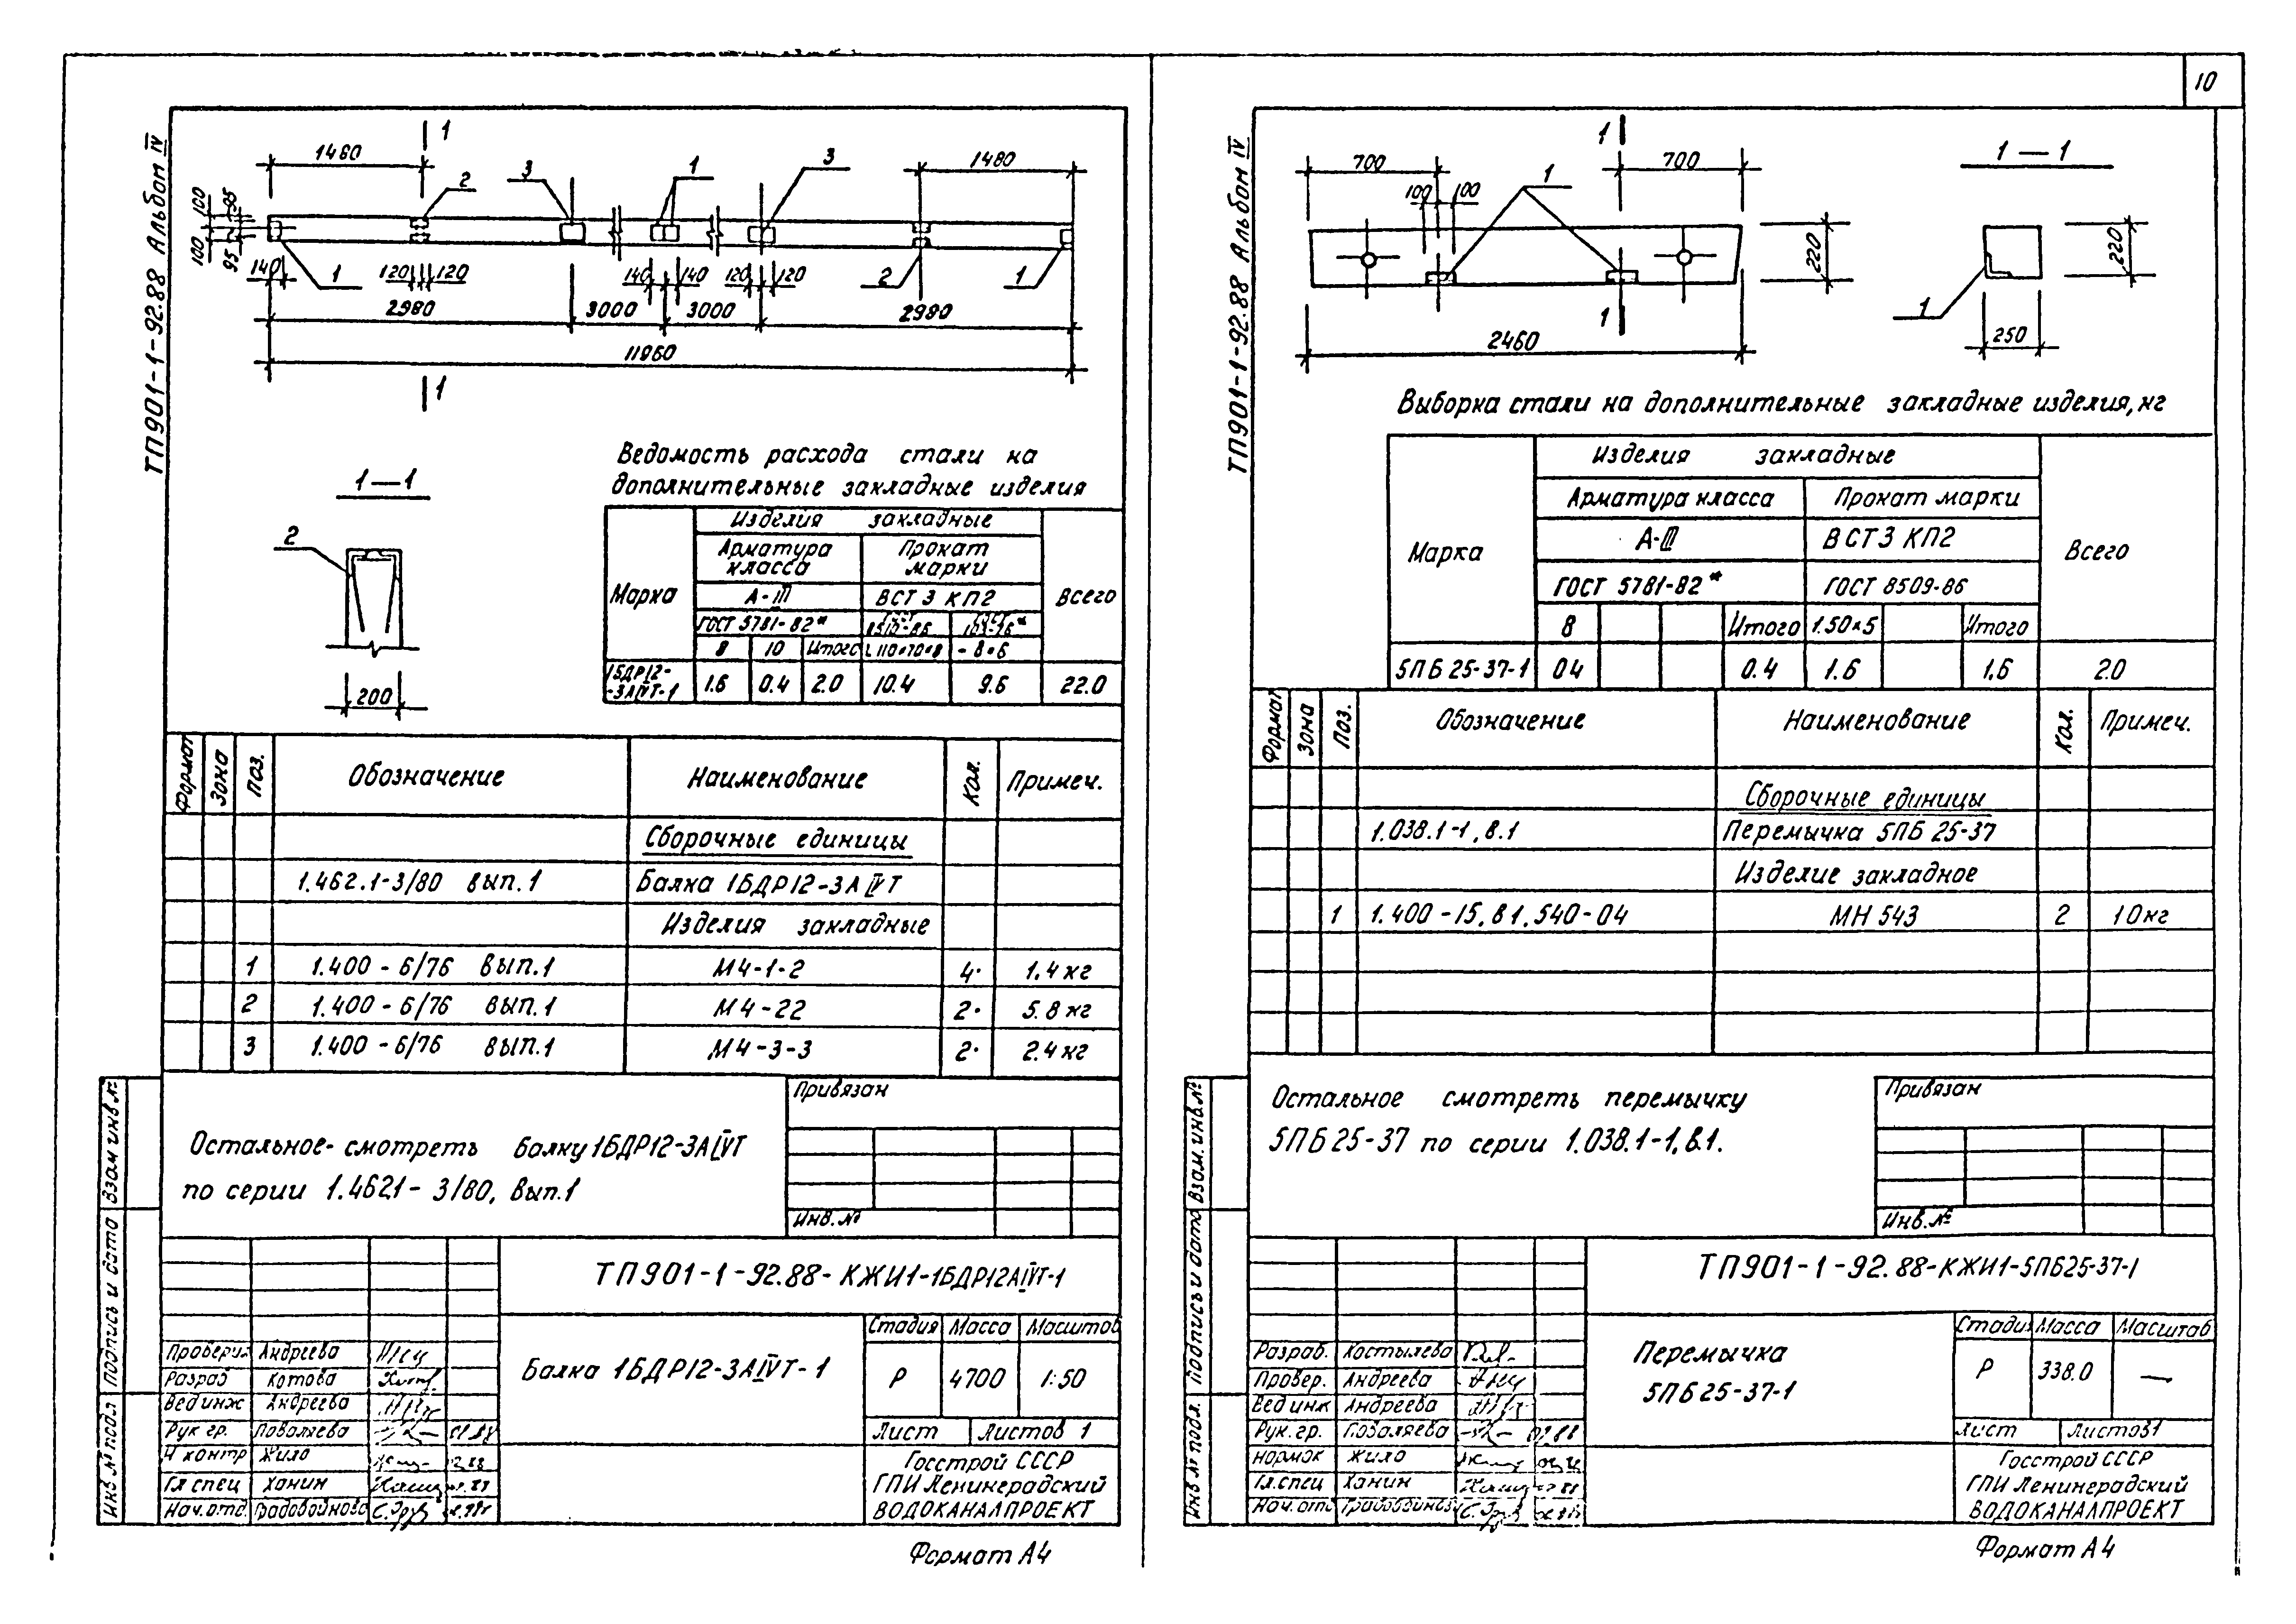 10
ТП901-1-92.88 Альбом IV
1
1460
2
3
1
3
1480
100
95
100
95
140
1
120
120
140
140
120
120
2
1
2980
3000
3000
2980
11960
1
1—1
2
200
Ведомость расхода стали на
дополнительные закладные изделия
Марка
Изделия закладные
Всего
Арматура класса
Прокат марки
А-III
ВСТ3 КП2
ГОСТ 5781-82*
8510-86
8 10 Итого L110×70×8 -8×6
1БДР12-3АIVТ-1 1.6 0.4 2.0 10.4 9.6 22.0
Формат Зона Поз. Обозначение Наименование Кол. Примеч.
Сборочные единицы
1.462.1-3/80 вып.1 Балка 1БДР12-3АIVТ
Изделия закладные
1 1.400-6/76 вып.1 М4-1-2 4 1.4кг
2 1.400-6/76 вып.1 М4-22 2 5.8кг
3 1.400-6/76 вып.1 М4-3-3 2 2.4кг
Остальное смотреть балку 1БДР12-3АIVТ
по серии 1.462.1-3/80, вып.1
Привязан
Инв.№
Взам инв.№
Подпись и дата
Инв.№ подл
ТП901-1-92.88-КЖИ1-1БДР12АIVТ-1
Проверил Андреева
Разраб Котова
Вед инж Андреева
Рук гр. Поваляева
Н контр Жило
Гл спец Ханин
Нач.отд.
Балка 1БДР12-3АIVТ-1
Стадия Масса Масштаб
Р 4700 1:50
Лист Листов 1
Госстрой СССР
ГПИ Ленинградский
ВОДОКАНАЛПРОЕКТ
Формат А4
ТП901-1-92.88 Альбом IV
1
700
700
100
100
1
220
1
2460
1—1
220
1
250
Выборка стали на дополнительные закладные изделия, кг
Марка
Изделия закладные
Всего
Арматура класса
Прокат марки
А-III
ВСТ3 КП2
ГОСТ 5781-82*
ГОСТ 8509-86
8 Итого L50×5 Итого
5ПБ25-37-1 04 0.4 1.6 1.6 2.0
Формат Зона Поз. Обозначение Наименование Кол. Примеч.
Сборочные единицы
1.038.1-1, в.1 Перемычка 5ПБ 25-37
Изделие закладное
1 1.400-15.в1.540-04 МН 543 2 10кг
Остальное смотреть перемычку
5ПБ25-37 по серии 1.038.1-1, в.1.
Привязан
Инв.№
Взам. инв.№
Подпись и дата
Инв № подл.
ТП901-1-92.88-КЖИ1-5ПБ25-37-1
Разраб. Костылева
Провер. Андреева
Вед инж Андреева
Рук. гр. Поваляева
Нормок Жило
Гл.спец Ханин
Нач.отд
Перемычка
5ПБ25-37-1
Стадия Масса Масштаб
Р 338.0 —
Лист Листов 1
Госстрой СССР
ГПИ Ленинградский
ВОДОКАНАЛПРОЕКТ
Формат А4